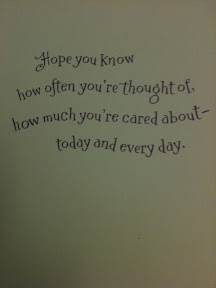 Hope you know
how often you're thought of,
how much you're cared about–
today and every day.